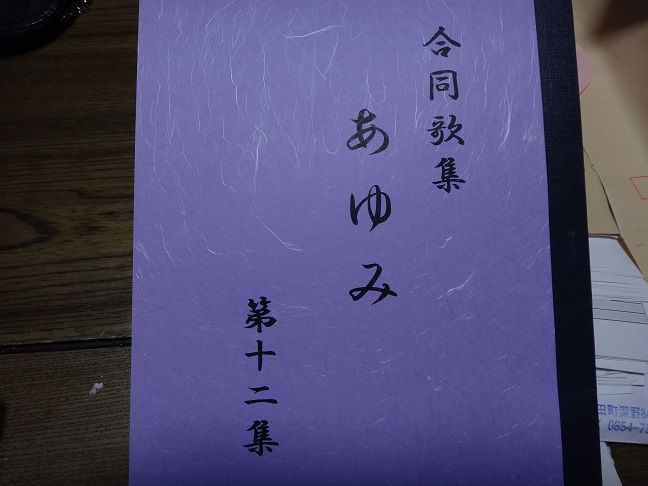 合同歌集
あゆみ
第十二集
田町深野8
0854-75